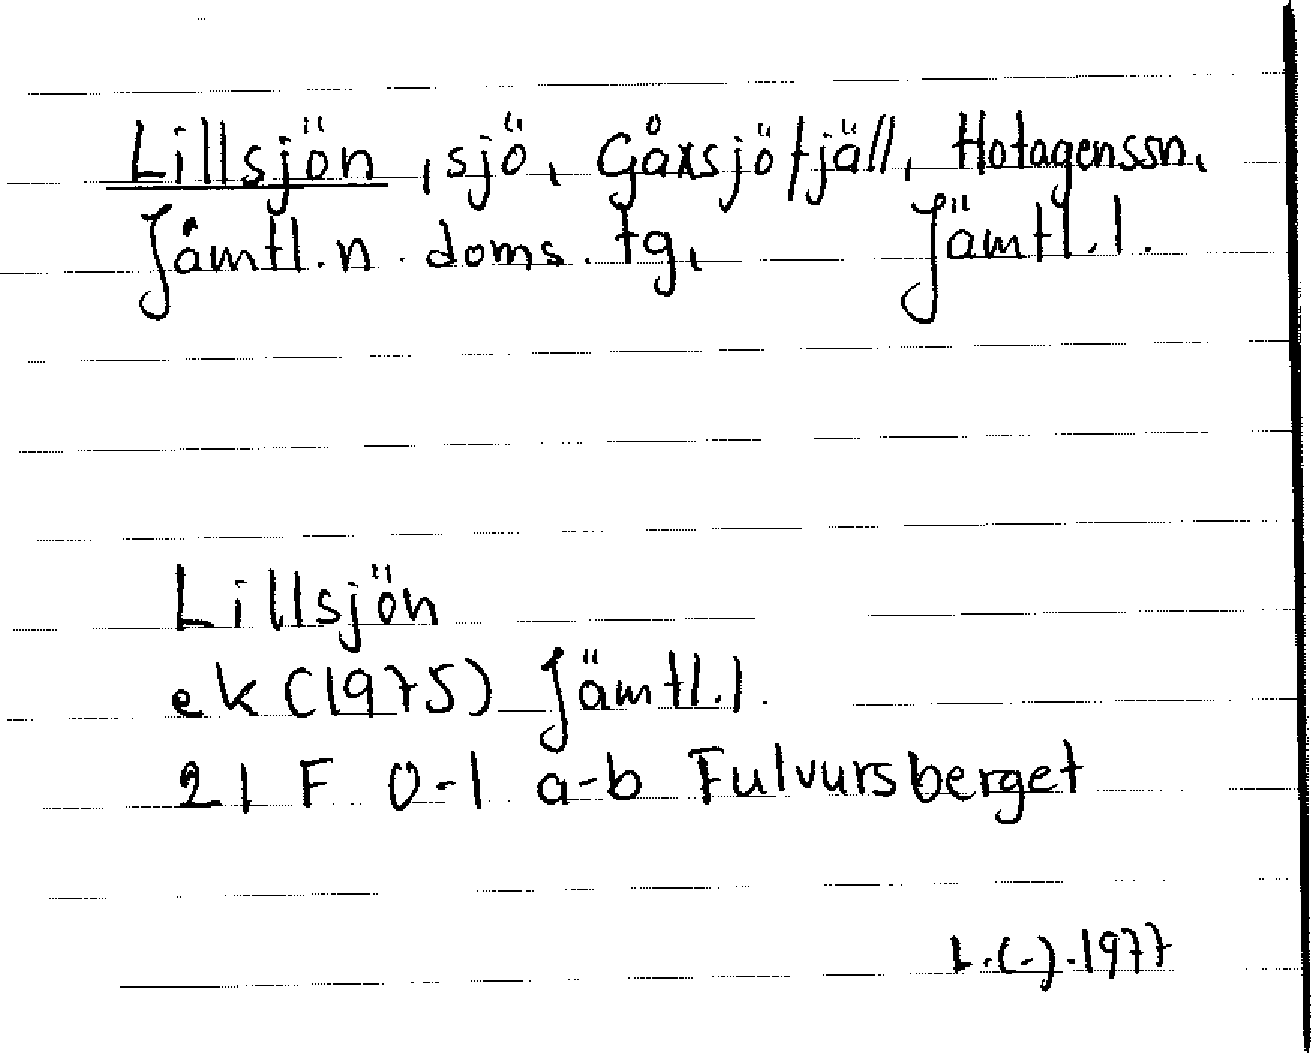 Lillsjön, sjö, Gåxsjöfjäll, Hotagenssn,
Jämtl.n. doms. tg, Jämtl.l.
Lillsjön
ek (1975) Jämtl.l.
21 F 0-1 a-b Fulvursberget
L.(-).1977